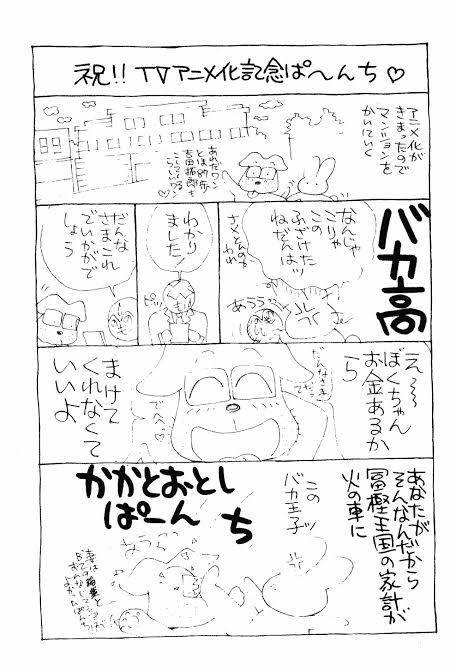 祝!! TVアニメ化記念ぱ〜んち♡
アニメ化が
きまったので
マンションを
かいにいく
バカ高
なんじゃ
こりゃ
この
ふざけた
ねだんはッ
あうう
わかり
ました!
ピッ
だんな
さまこれ
でいかがで
しょう
え〜〜
ぼくちゃん
お金あるか
ら
でへ♡
まけて
くれなくて
いいよ
あなたが
そんなんだから
冨樫王国の家計が
火の車に
かかとおとし
ぱーんち
このッ
バカ王子